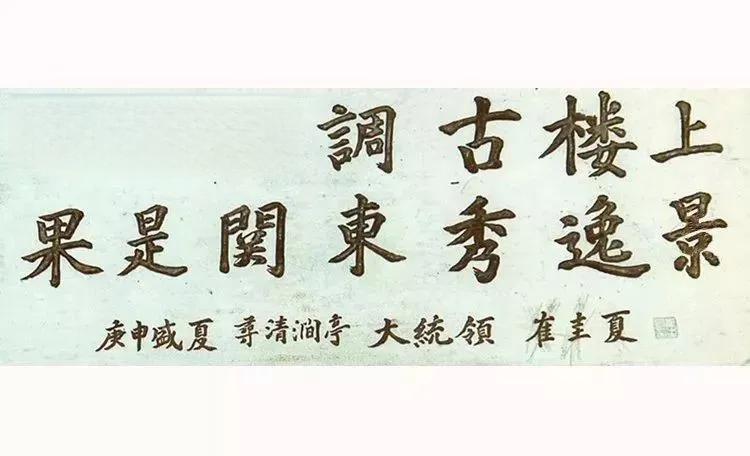 調古楼上
果是関東秀逸景
庚申盛夏 尋清澗亭 大統領 崔圭夏